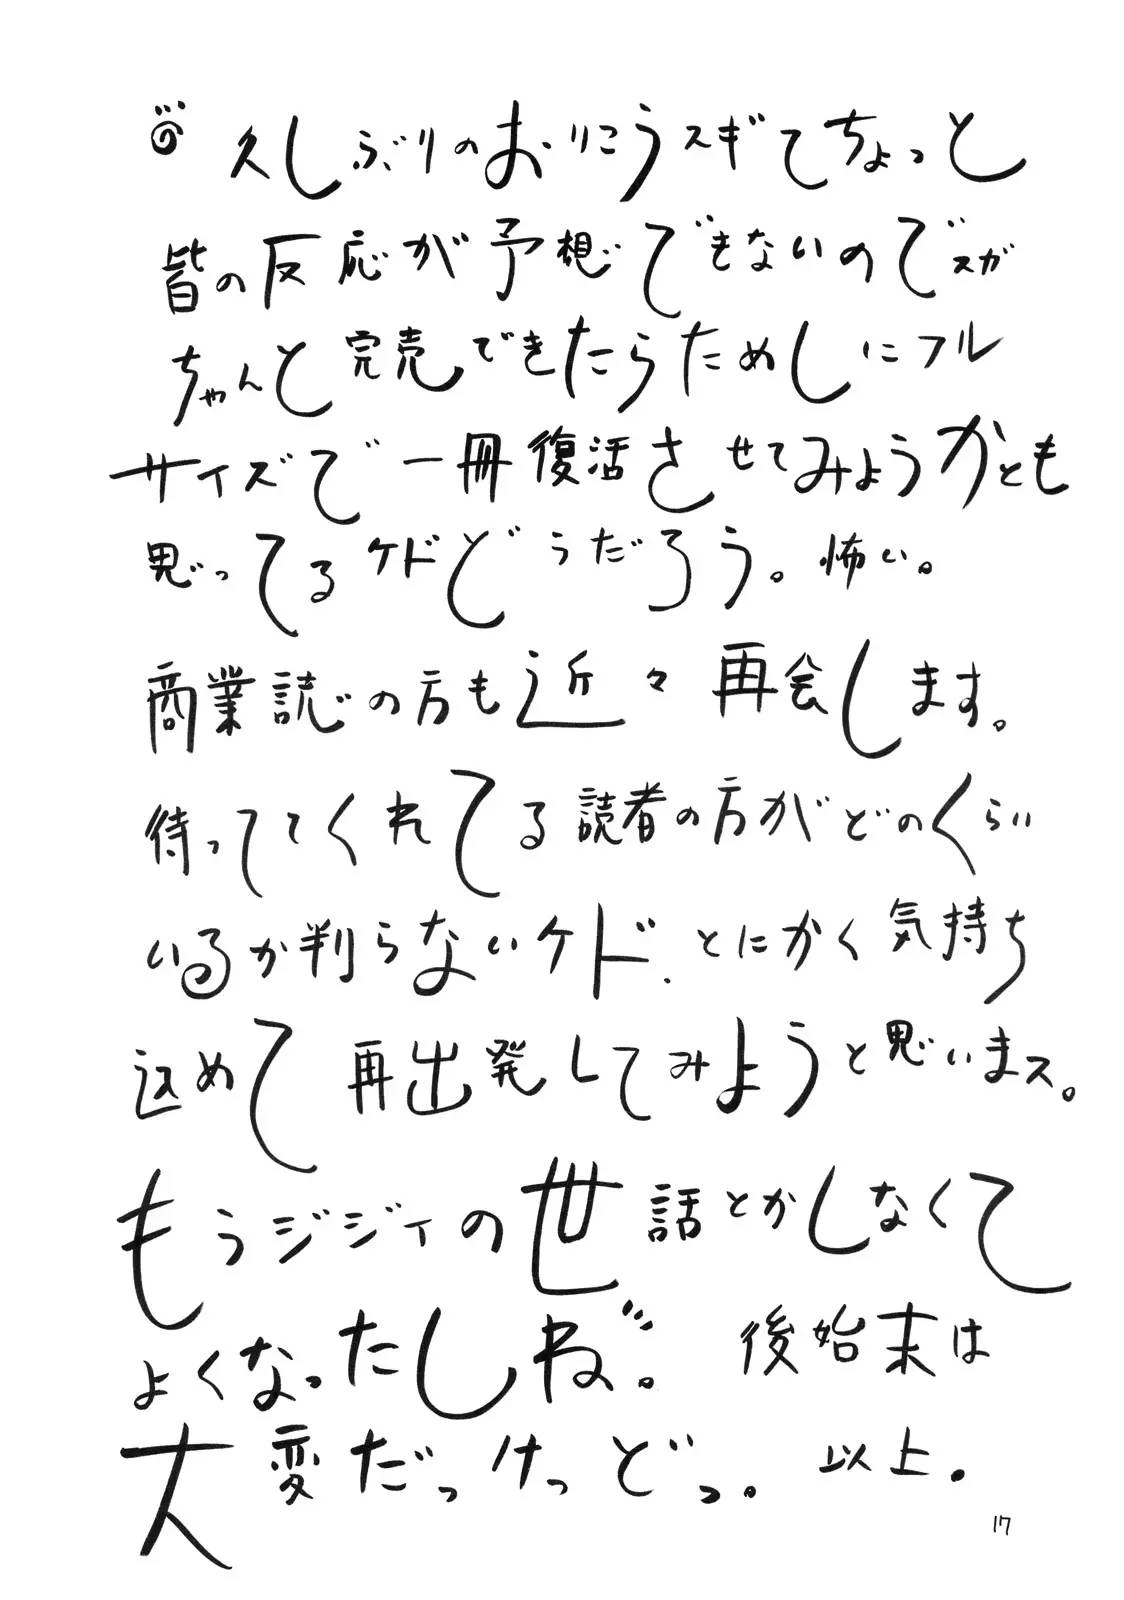 久しぶりのおりこうスギてちょっと
皆の反応が予想できないのでスガ
ちゃんと完売できたらためしにフル
サイズで一冊復活させてみようかとも
思ってるケドどうだろう。怖い。
商業誌の方も近々再会します。
待っててくれてる読者の方がどのくらい
いるか判らないケド、とにかく気持ち
込めて再出発してみようと思いまス。
もうジジィの世話とかしなくて
よくなったしね゛。後始末は
大変だっけっどっ。以上。
17